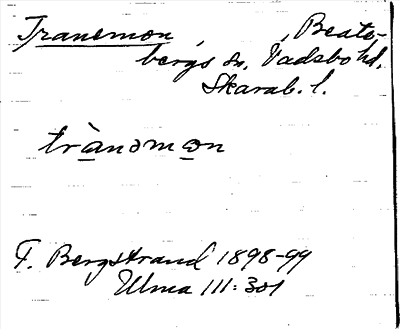 Tranemon, , Beate-
bergs sn, Vadsbo hd.
Skarab. l.
trànəmɷn
F. Bergstrand 1898-99
Ulma 111:301